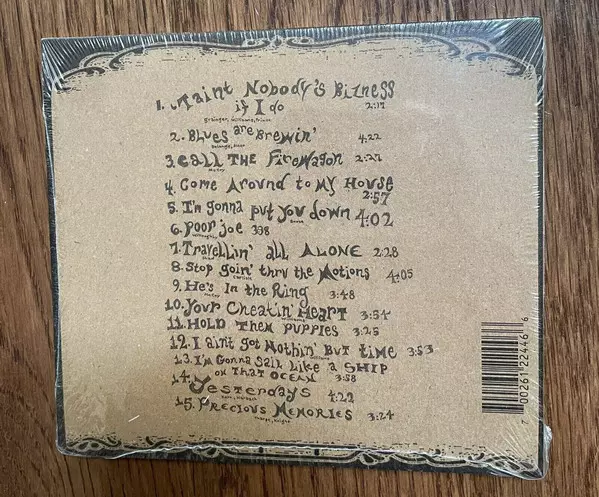 1. Taint Nobody's Bizness
if I do 2:17
Grainger, Williams, Prince
2. Blues are Brewin' 4:22
3. Call The Firewagon 2:27
4. Come Around to My House
2:57
5. I'm gonna put you down 4:02
6. Poor joe 3:38
7. Travellin' all ALONE 2:28
8. Stop goin' thru the Motions 4:05
9. He's In the Ring 3:48
10. Your Cheatin' Heart 3:54
11. HOLD Them PUPPIES 3:25
12. I aint got Nothin' But time 3:53
13. I'm Gonna Sail Like a SHIP
on THAT OCEAN 3:58
14. Yesterdays 4:22
15. Precious Memories 3:24
7 00261 22446 6